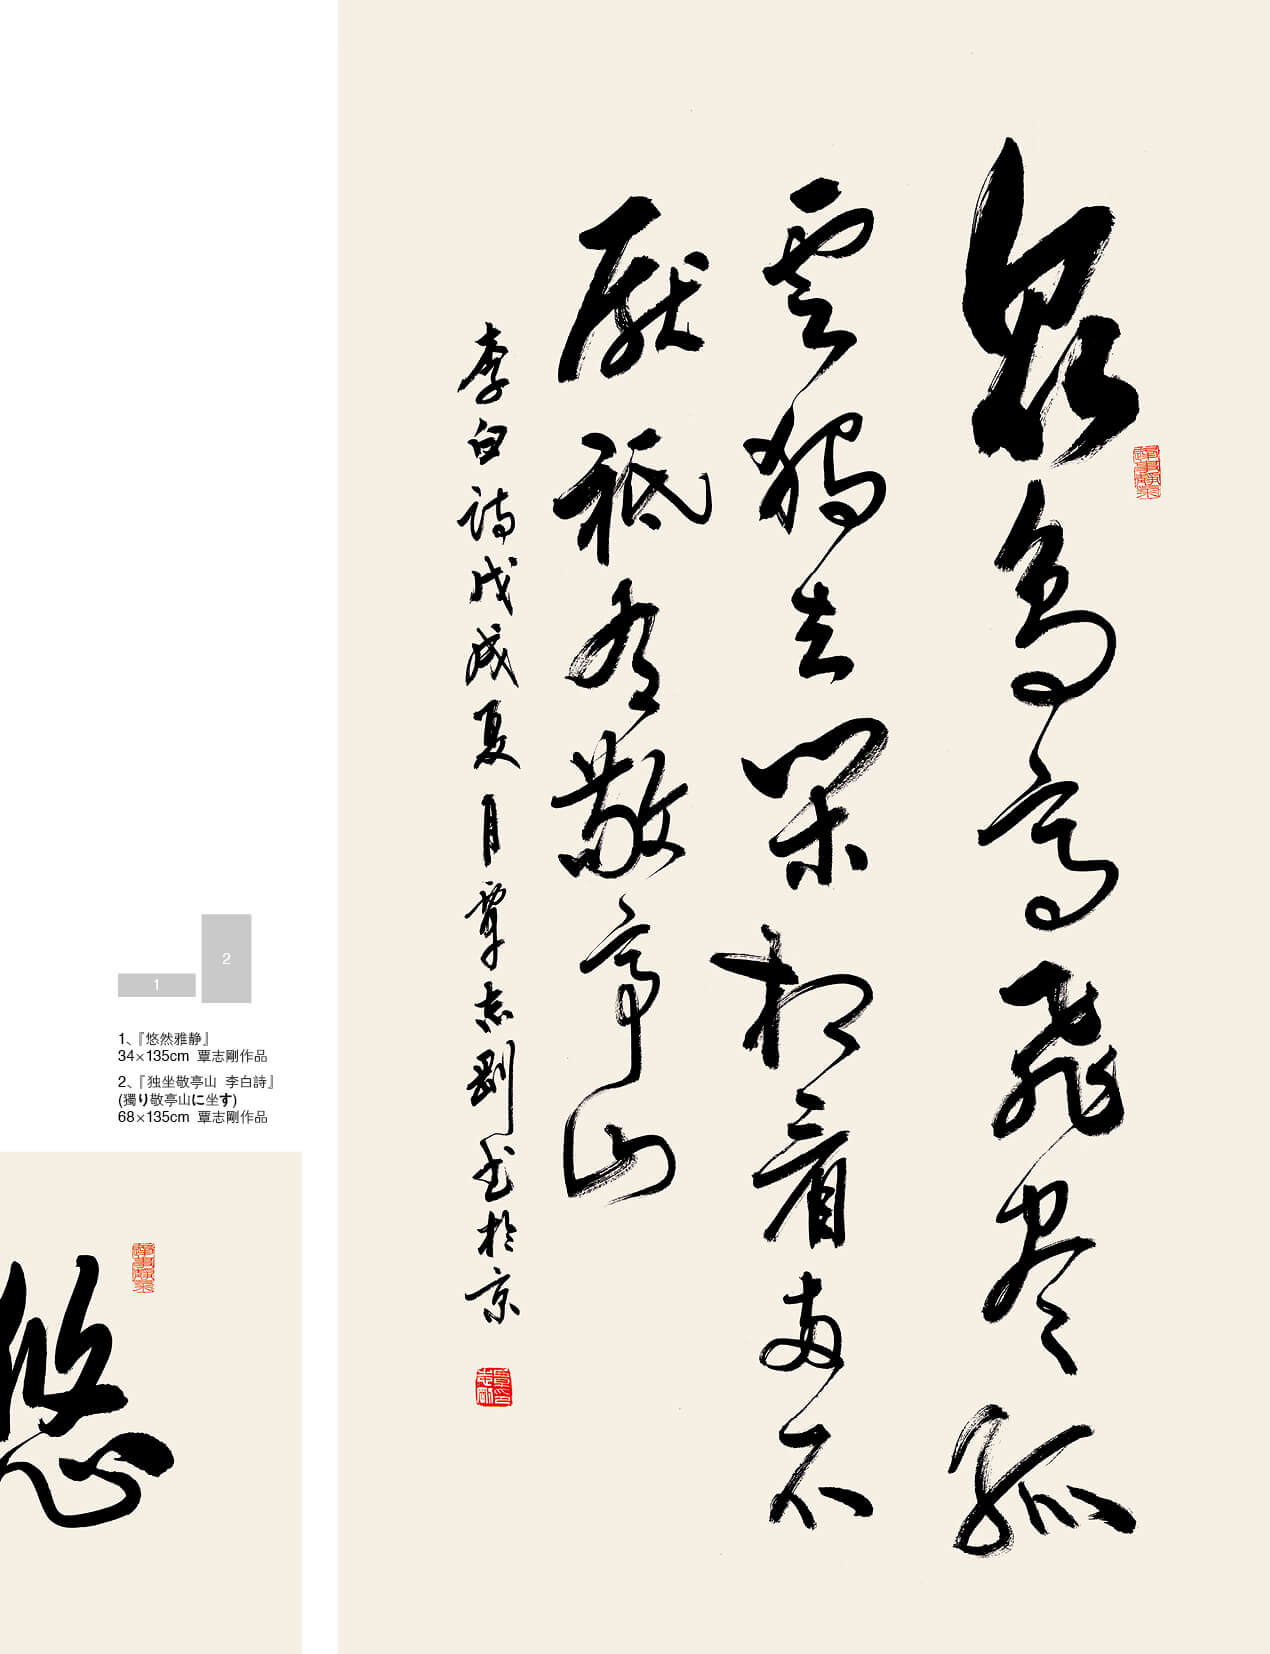 眾鳥高飛尽孤
雲獨去閑相看兩不
厭祗有敬亭山
李白詩戊戌夏月覃志剛書於京
1
2
1、『悠然雅静』
34×135cm 覃志剛作品
2、『独坐敬亭山 李白詩』
(獨り敬亭山に坐す)
68×135cm 覃志剛作品
悠